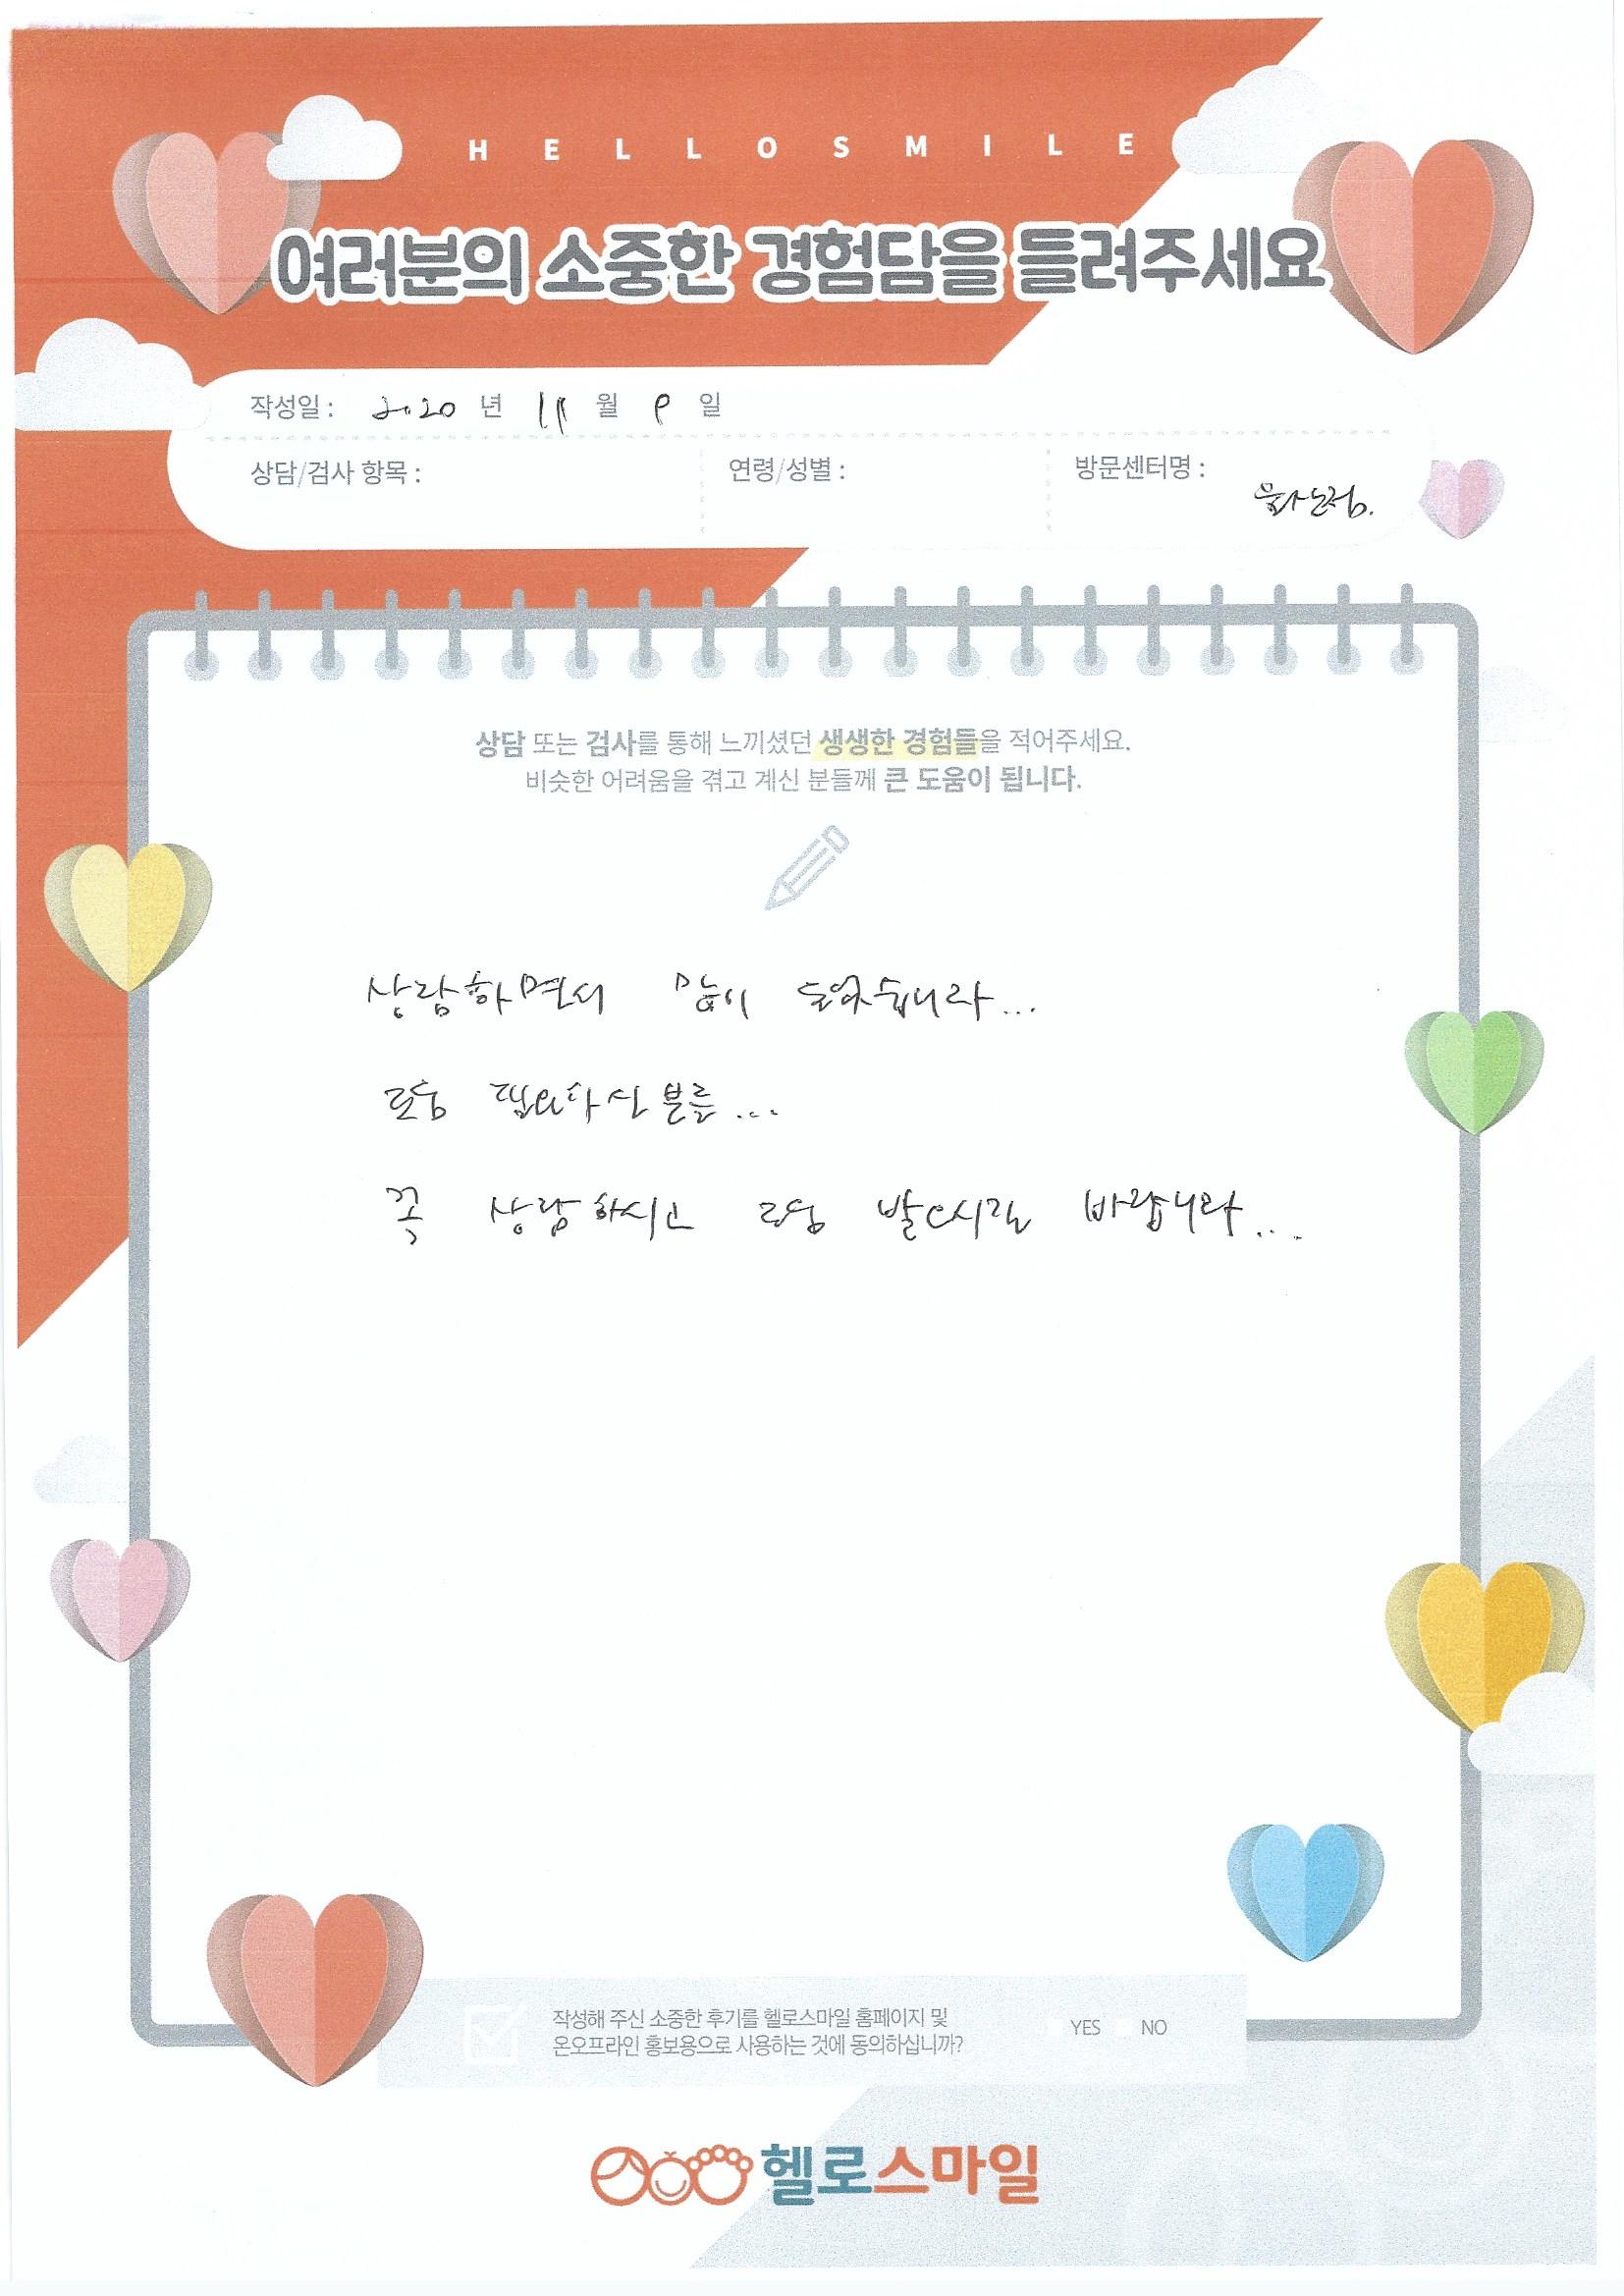 HELLOSMILE
여러분의 소중한 경험담을 들려주세요
작성일 : 2020 년 11 월 9 일
상담/검사 항목 : 연령/성별 : 방문센터명 :
상담 또는 검사를 통해 느끼셨던 생생한 경험들을 적어주세요.
비슷한 어려움을 겪고 계신 분들께 큰 도움이 됩니다.
상담하면서 많이 도웠습니다...
도움 필요하신분들...
꼭 상담하시고 도움 받으시길 바랍니다...
작성해 주신 소중한 후기를 헬로스마일 홈페이지 및
온오프라인 홍보용으로 사용하는 것에 동의하십니까? YES NO
헬로스마일